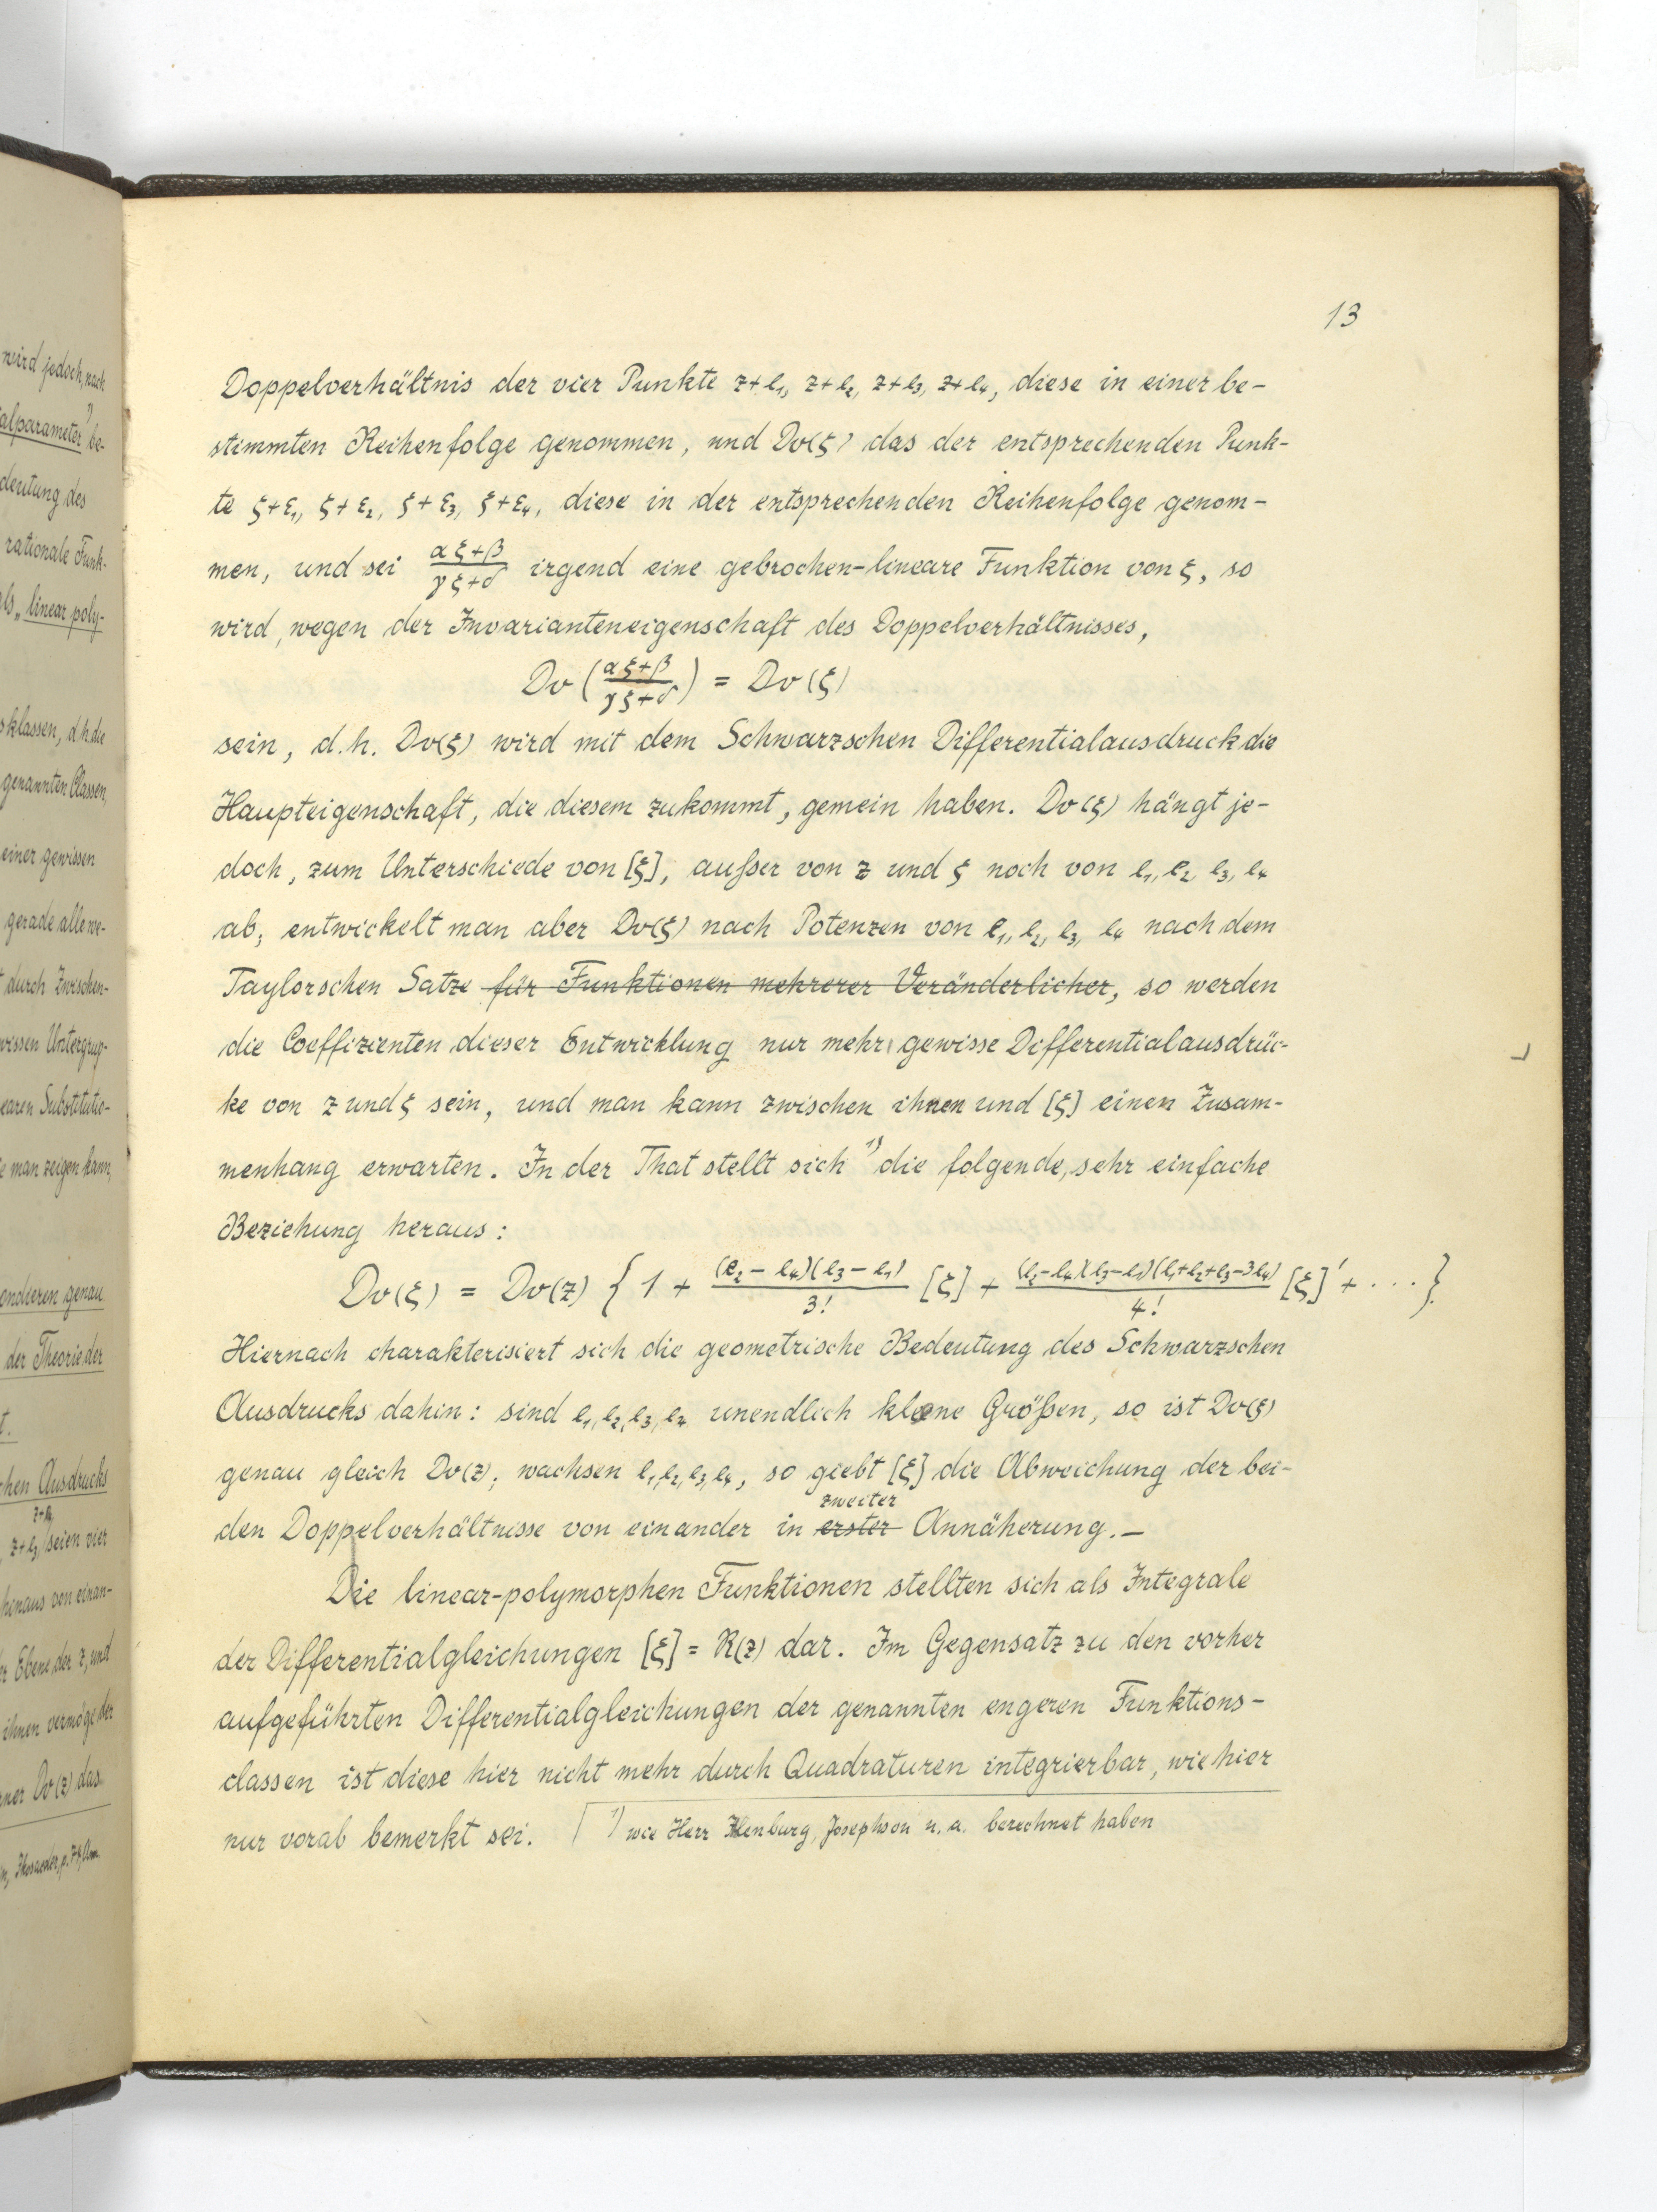 wird jedoch, nach
alparameter" be-
deutung des
rationale Funk-
als „linear poly-
sklassen, d.h. die
genannten Classen,
einer gewissen
gerade alle we-
durch Zwischen-
wissen Untergrup-
earen Substitutio-
e man zeigen kann,
endieren genau
der Theorie der
t.
chen Ausdrucks
z+l₃, seien vier
hinaus von einan-
er Ebene der z, und
ihnen vermöge der
rner Dv(z) das
13
Doppelverhältnis der vier Punkte z+l₁, z+l₂, z+l₃, z+l₄, diese in einer be-
stimmten Reihenfolge genommen, und Dv(ξ) das der entsprechenden Punk-
te ξ+ε₁, ξ+ε₂, ξ+ε₃, ξ+ε₄, diese in der entsprechenden Reihenfolge genom-
men, und sei (αξ+β)/(γξ+δ) irgend eine gebrochen-lineare Funktion von ξ, so
wird, wegen der Invarianteneigenschaft des Doppelverhältnisses,
Dv((αξ+β)/(γξ+δ)) = Dv(ξ)
sein, d.h. Dv(ξ) wird mit dem Schwarzschen Differentialausdruck die
Haupteigenschaft, die diesem zukommt, gemein haben. Dv(ξ) hängt je-
doch, zum Unterschiede von [ξ], außer von z und ξ noch von l₁, l₂, l₃, l₄
ab; entwickelt man aber Dv(ξ) nach Potenzen von l₁, l₂, l₃, l₄ nach dem
Taylorschen Satze für Funktionen mehrerer Veränderlicher, so werden
die Coeffizienten dieser Entwicklung nur mehr gewisse Differentialausdrüc-
ke von z und ξ sein, und man kann zwischen ihnen und [ξ] einen Zusam-
menhang erwarten. In der That stellt sich ¹⁾ die folgende, sehr einfache
Beziehung heraus:
Dv(ξ) = Dv(z) { 1 + (l₂-l₄)(l₃-l₁)/3! [ξ] + (l₂-l₄)(l₃-l₁)(l₁+l₂+l₃-3l₄)/4! [ξ]' + .... }
Hiernach charakterisiert sich die geometrische Bedeutung des Schwarzschen
Ausdrucks dahin: sind l₁, l₂, l₃, l₄ unendlich kleine Größen, so ist Dv(ξ)
genau gleich Dv(z); wachsen l₁, l₂, l₃, l₄, so giebt [ξ] die Abweichung der bei-
den Doppelverhältnisse von einander in erster zweiter Annäherung.—
Die linear-polymorphen Funktionen stellten sich als Integrale
der Differentialgleichungen [ξ] = R(z) dar. Im Gegensatz zu den vorher
aufgeführten Differentialgleichungen der genannten engeren Funktions-
classen ist diese hier nicht mehr durch Quadraturen integrierbar, wie hier
nur vorab bemerkt sei.
¹⁾ wie Herr Josephson u. a. berechnet haben